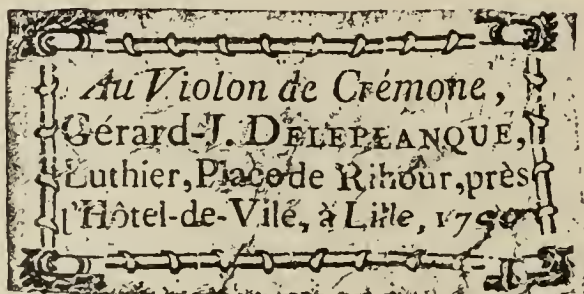 Au Violon de Crémone,
Gérard-J. DELEPLANQUE,
Luthier, Place de Rihour, près
l'Hôtel-de-Vile, à Lille,